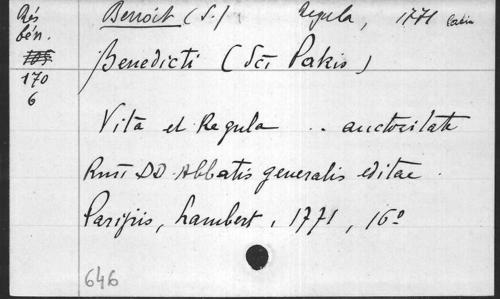 Rés
bén.
105
170
6
Benoît (S.) Regula, 1771 Latin
Benedicti (Sci Patris)
Vita et Regula .. auctoritate
Rmi DD Abbatis generalis editae.
Parisiis, Lambert, 1771, 16º
646